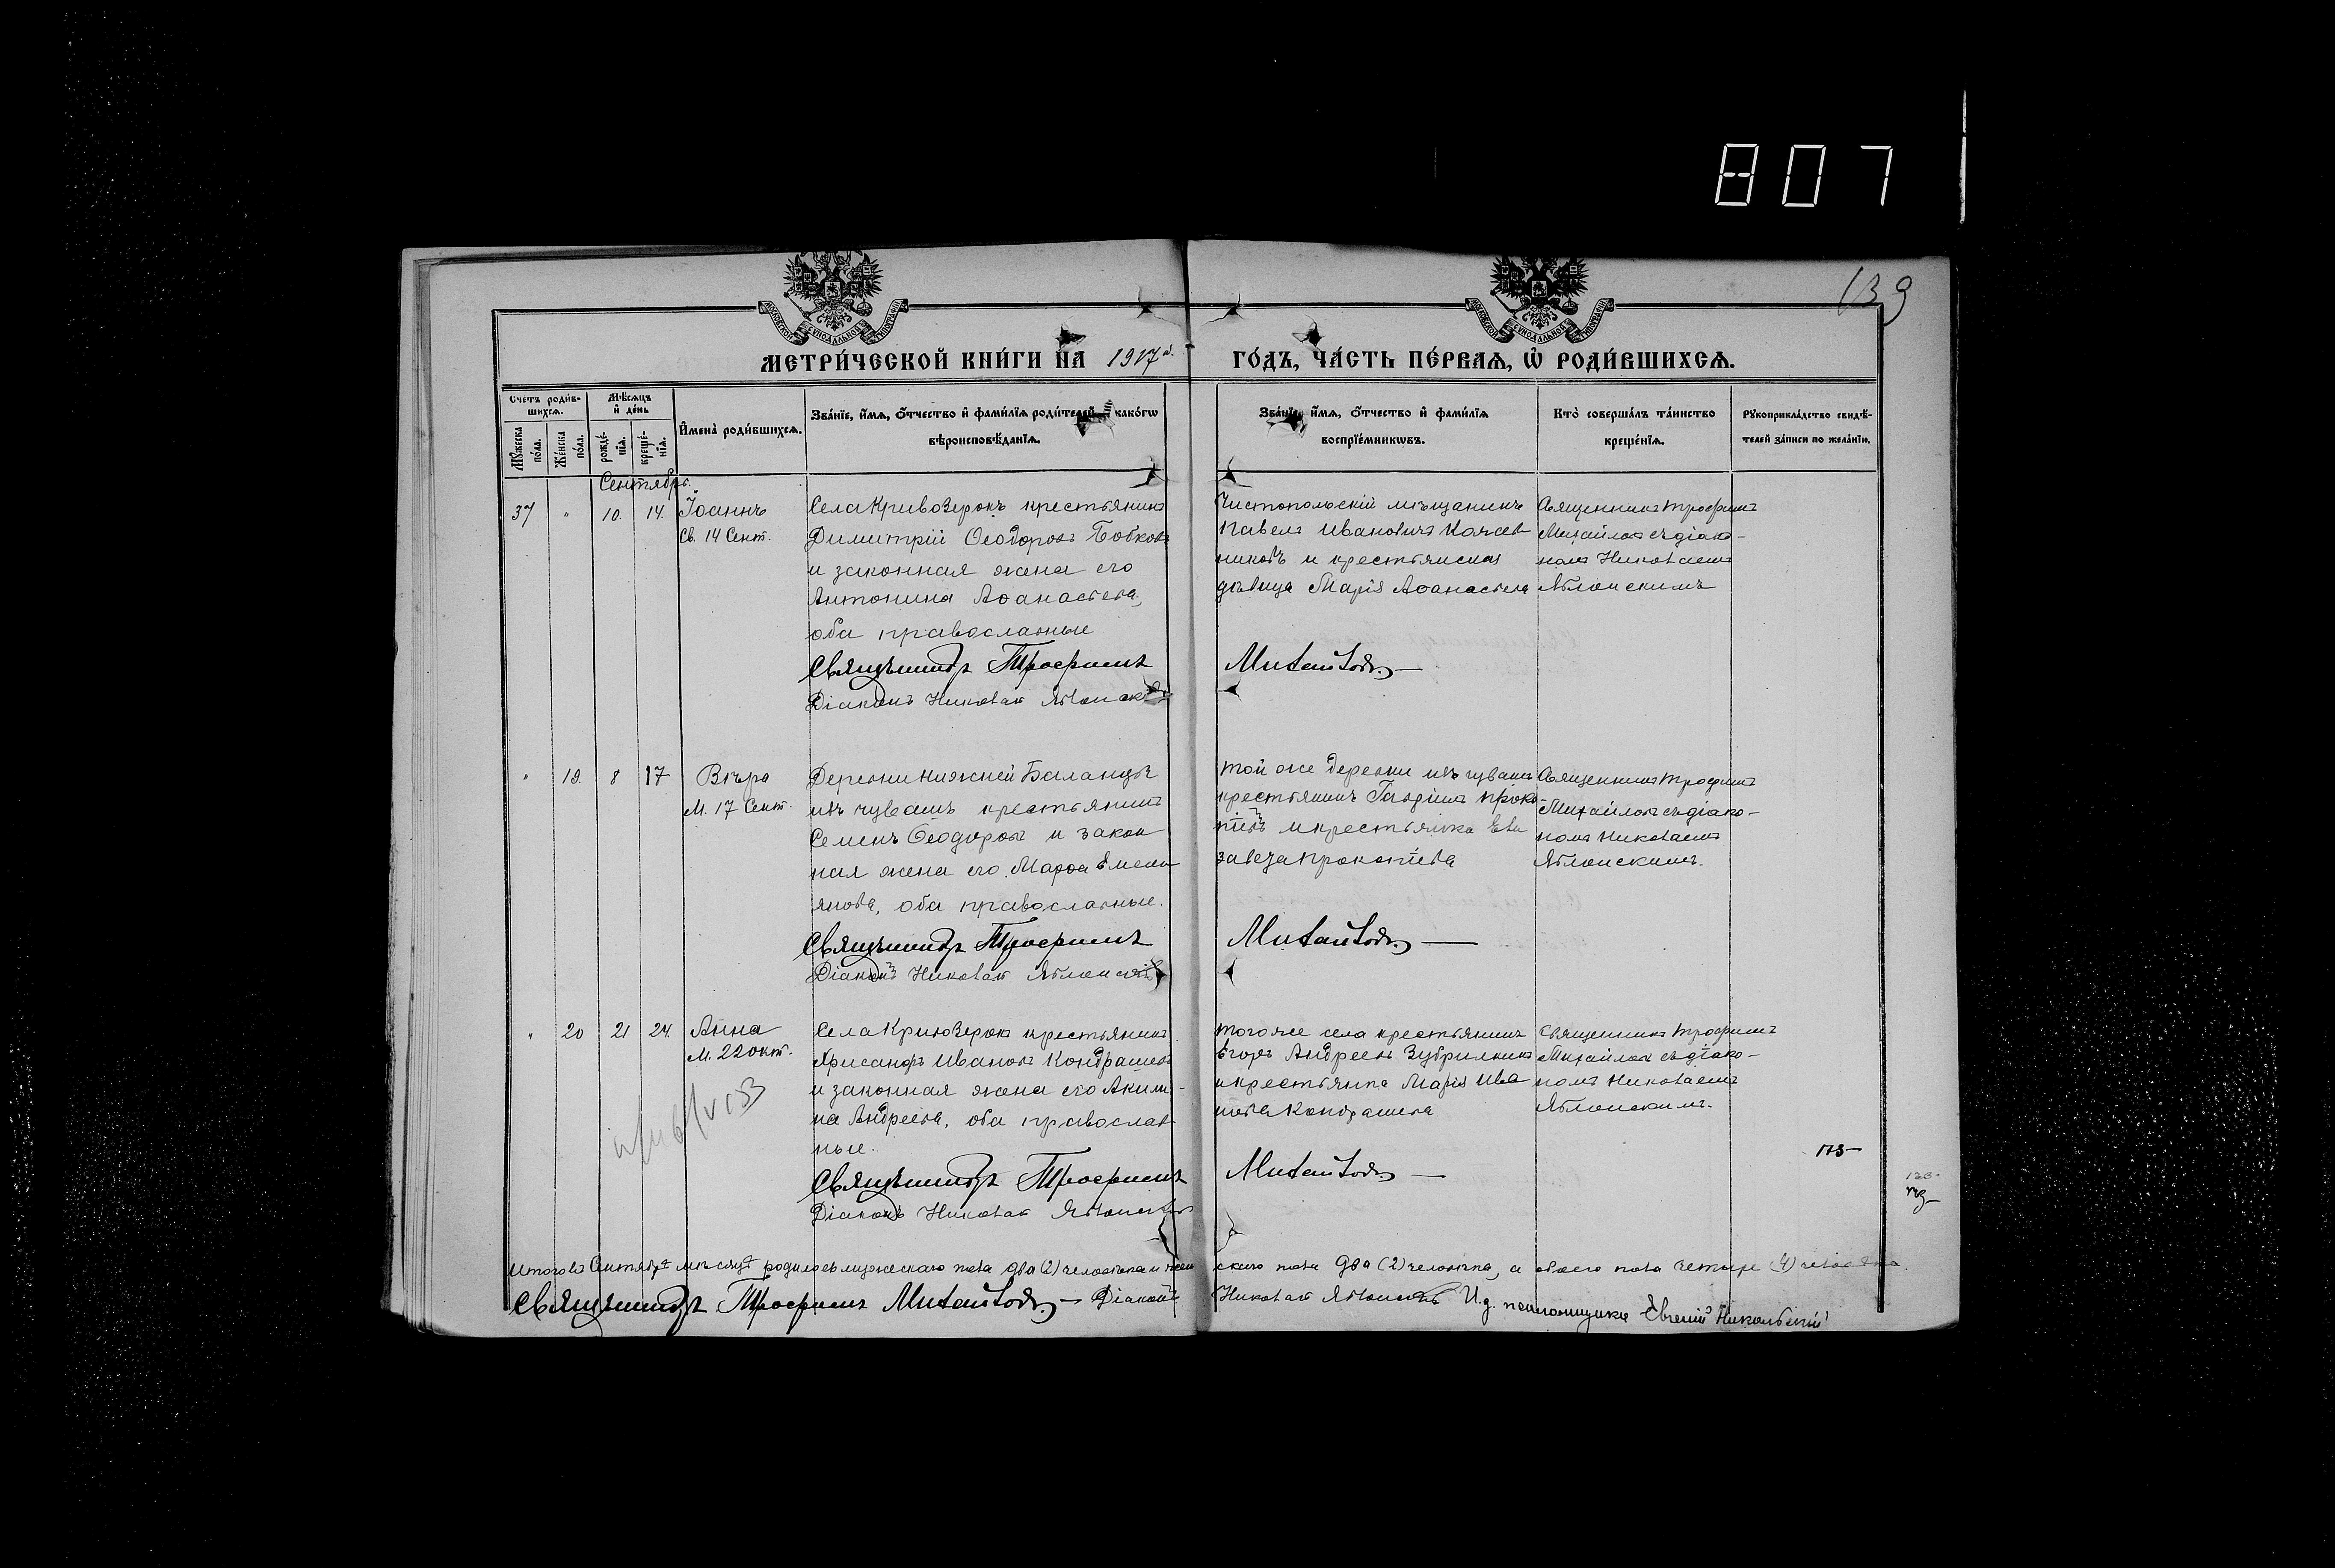 807
139
МОСКОВСКОЙ СѴНОДАЛЬНОЙ ТИПОГРАФІИ
МОСКОВСКОЙ СѴНОДАЛЬНОЙ ТИПОГРАФІИ
МЕТРИ́ЧЕСКОЙ КНИ́ГИ НА 1917 й. ГО́ДЪ, ЧА́СТЬ ПЕ́РВАѦ, Ѡ҆ РОДИ́ВШИХСѦ.
Счетъ роди́в-
шихсѧ.
Мѹ́жеска по́ла.
Же́нска по́ла.
Мѣ́сѧцъ и҆ де́нь
рожде́-
нїѧ.
креще́-
нїѧ.
И҆мена̀ роди́вшихсѧ.
Зва́нїе, и҆́мѧ, ѻ҆́тчество и҆ фами́лїѧ роди́телей и како́гѡ
вѣроисповѣ́данїѧ.
Зва́нїе, и҆́мѧ, ѻ҆́тчество и҆ фами́лїѧ
воспрїе́мникѡвъ.
Кто̀ соверша́лъ та́инство
креще́нїѧ.
Рѹкоприкла́дство свидѣ́-
телей за́писи по жела́нїю.
Сентябрь.
37 " 10. 14. Іоаннъ
Св. 14 Сент.
Села Кривозерокъ крестьянинъ
Димитрій Ѳеодоровъ Бобковъ
и законная жена его
Антонина Аѳанасьева,
оба православные
Священникъ Трофимъ
Діаконъ Николай Яблонскій
Чистопольскій мѣщанинъ
Павелъ Ивановичъ Кожев
никовъ и крестьянская
дѣвица Марія Аѳанасьева
Михайловъ.
Священникъ Трофимъ
Михайловъ съ діако-
номъ Николаемъ
Яблонскимъ
" 19. 8 17 Вѣра
М. 17 Сент.
Деревни Нижней Баланды
изъ чувашъ крестьянинъ
Семенъ Ѳеодоровъ и закон
ная жена его Марѳа Емель
янова, оба православные.
Священникъ Трофимъ
Діаконъ Николай Яблонскій
Той же деревни изъ чувашъ
крестьянинъ Гавріилъ Проко
піевъ и крестьянка Ели
завета Прокопіева
Михайловъ.
Священникъ Трофимъ
Михайловъ съ діако-
номъ Николаемъ
Яблонскимъ.
" 20 21 24. Анна
М. 22 окт.
Села Кривозерокъ крестьянинъ
Хрисанфъ Ивановъ Кондрашевъ
и законная жена его Акили-
на Андреева, оба православ
ные.
Священникъ Трофимъ
Діаконъ Николай Яблонскій
Того же села крестьянинъ
Егоръ Андреевъ Зубрилкинъ
и крестьянка Марія Ива
нова Кондрашева
Михайловъ.
Священникъ Трофимъ
Михайловъ съ діако-
номъ Николаемъ
Яблонскимъ.
Итого въ Сентябрѣ мѣсяцѣ родилось мужескаго пола два (2) человѣка и жен скаго пола два (2) человѣка, а обоего пола четыре (4) человѣка.
Священникъ Трофимъ Михайловъ. Діаконъ Николай Яблонскій И.д. псаломщика Евгеній Никольскій